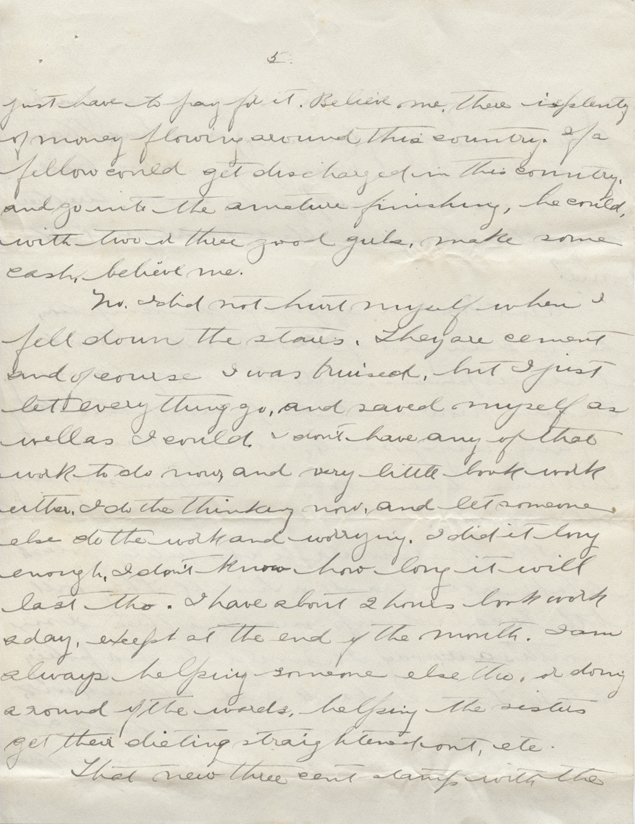 5
just have to pay for it. Believe me, there is plenty
of money flowing around this country. If a
fellow could get discharged in this country,
and go into the amature finishing, he could,
with two or three good girls, make some
cash, believe me.
No. I did not hurt myself when I
fell down the stairs. They are cement
and of course I was bruised, but I just
let everything go, and saved myself as
well as I could. I don't have any of that
work to do now, and very little book work
either. I do the thinking now, and let someone
else do the work and worrying. I did it long
enough. I don't know how long it will
last tho. I have about 2 hours book work
a day, except at the end of the month. I am
always helping someone else tho, or doing
around the wards, helping the sisters
get their dieting straightened out, etc.
That new three cent stamp with the